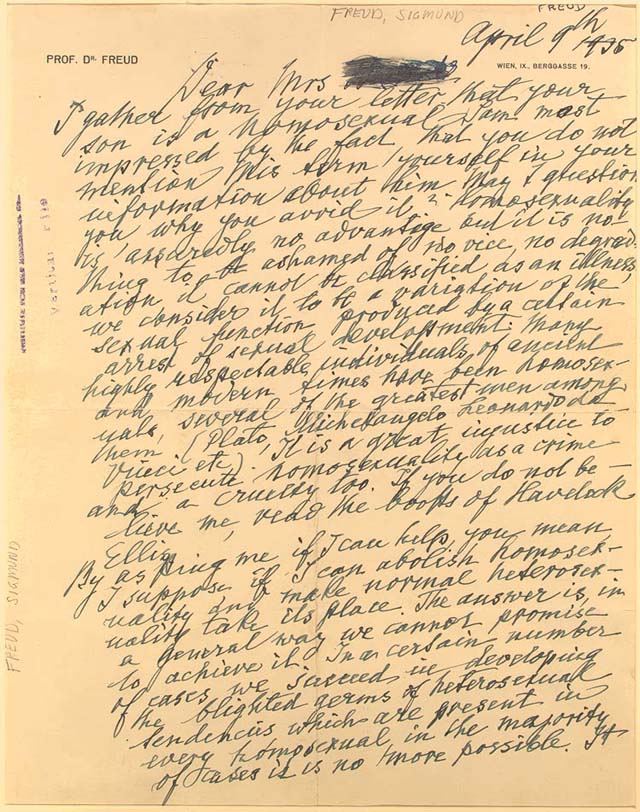 FREUD, SIGMUND
FREUD
April 9th 1935
PROF. DR. FREUD
WIEN, IX., BERGGASSE 19.
Dear Mrs
I gather from your letter that your
son is a homosexual. I am most
impressed by the fact, that you do not
mention this term yourself in your
information about him. May I question
you why you avoid it? Homosexuality
is assuredly no advantage but it is no-
thing to be ashamed of, no vice, no degrad-
ation it cannot be classified as an illness;
we consider it to be a variation of the
sexual function produced by a certain
arrest of sexual development. Many
highly respectable individuals of ancient
and modern times have been homosex-
uals, several of the greatest men among
them (Plato, Michelangelo, Leonardo da
Vinci etc). It is a great injustice to
persecute homosexuality as a crime
and a cruelty too. If you do not be-
lieve me, read the books of Havelock
Ellis.
By asking me if I can help, you mean
I suppose if I can abolish homosex-
uality and make normal heterosex-
uality take its place. The answer is, in
a general way we cannot promise
to achieve it. In a certain number
of cases we succeed in developing
the blighted germs of heterosexual
tendencies which are present in
every homosexual, in the majority
of cases it is no more possible. It
FREUD, SIGMUND